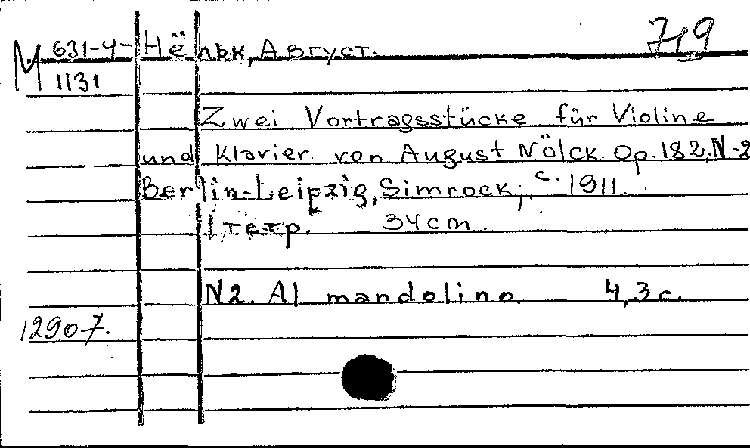 719
М 631-4- Нёльк, Август.
1131
Zwei Vortragsstücke für Violine
und Klavier von August Nölck. Op. 182, N-2
Berlin-Leipzig, Simrock, c. 1911.
1 тетр. 34 cm.
N2. Al mandolino 4,3 c.
12907.